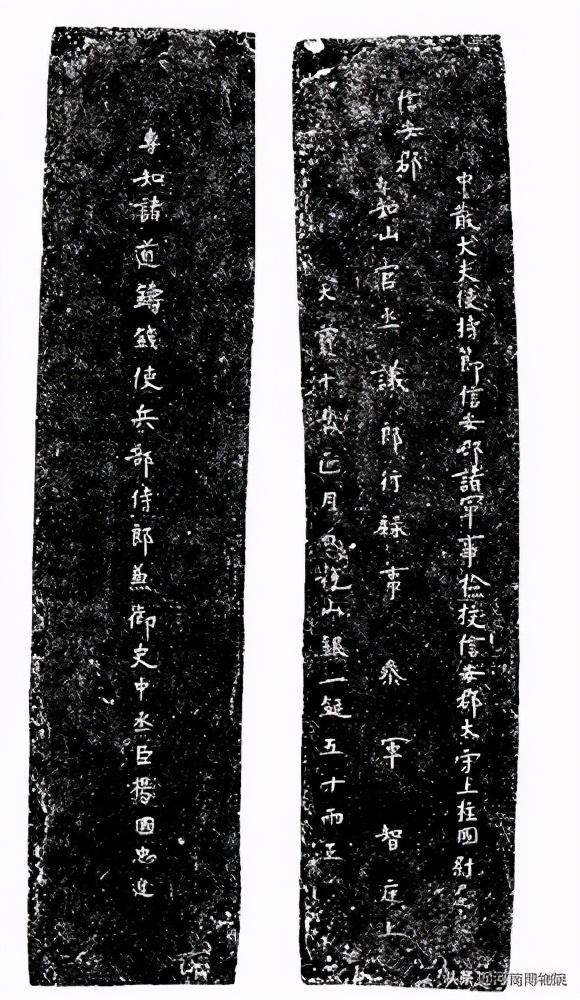 中散大夫使持節信安郡諸軍事檢挍信安郡太守上柱國尉
信安郡
專知山官丞議郎行錄事參軍智庭上
天寶十載正月日稅山銀一鋌五十兩正
專知諸道鑄錢使兵部侍郎兼御史中丞臣楊國忠進